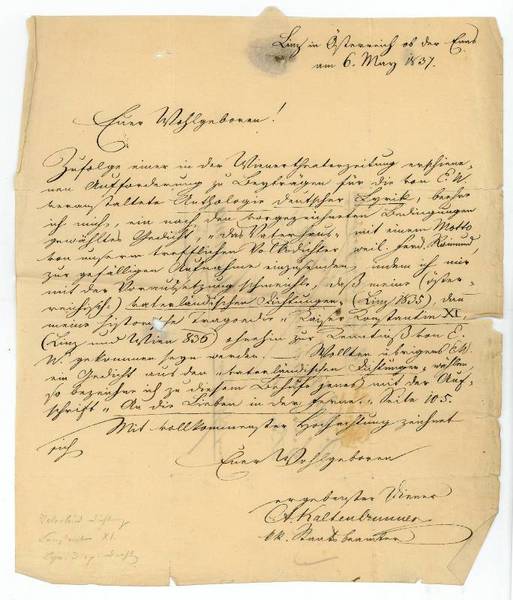 Linz in Österreich ob der Enns
am 6. May 1837.
Euer Wohlgeboren!
Zufolge einer in der Wienertheaterzeitung erschiene-
nen Aufforderung zu Beyträgen für die von E. W.
veranstaltete Anthologie deutscher Lyrik, beehre
ich mich, ein nach den vorgezeichneten Bedingungen
gewähltes Gedicht, „das Vaterhaus" mit einem Motto
von unserm trefflichen Volksdichter weil. Ferd. Raimund
zur gefälligen Aufnahme einzusenden, indem ich mir
mit der Voraussetzung schmeichle, daß meine (öster-
reichisch.) vaterländischen Dichtungen, (Linz 1835), dan
meine historische Tragoedie „Kaiser Constantin XI.
(Linz und Wien 836) ohnehin zur Kenntniß von E.
W. gekommen seyn werden. — Wollten übrigens E. W.
ein Gedicht aus den „vaterländischen Dichtungen" wählen
so bezeichne ich zu diesem Behufe jenes mit der Auf-
schrift „An die Lieben in der Ferne." Seite 105.
Mit vollkommenster Hochachtung zeichnet
sich
Euer Wohlgeboren
ergebenster Diener
A. Kaltenbrunner
kk. Staatsbeamter
XI.